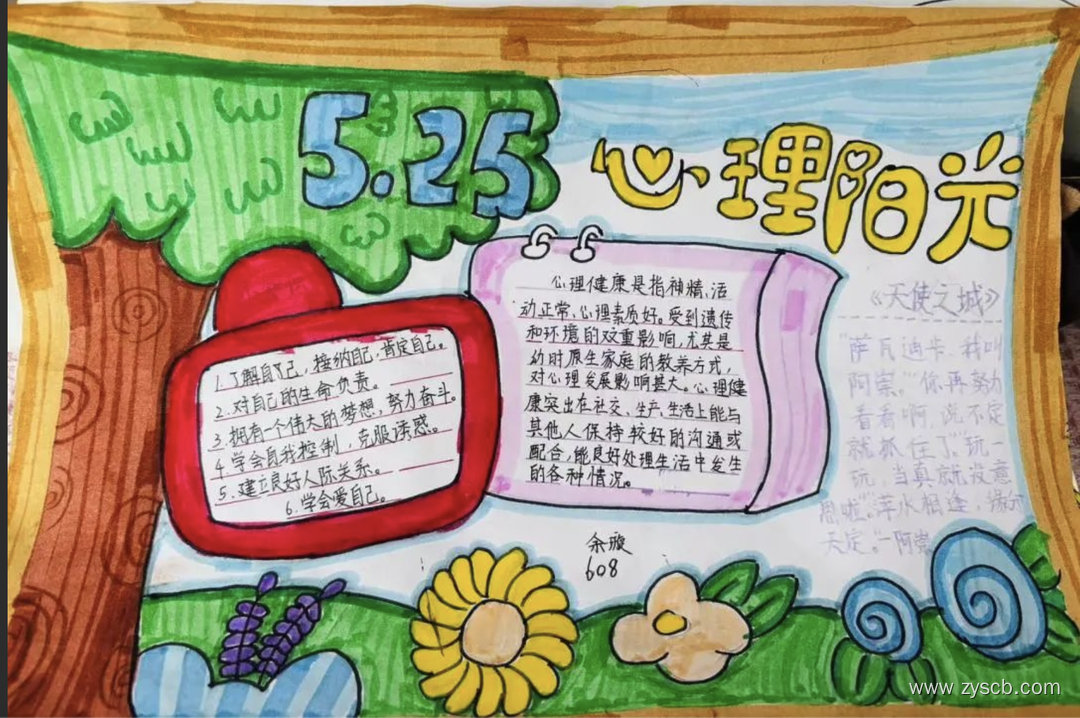 5.25
心理阳光
1.了解自己，接纳自己，肯定自己。
2.对自己的生命负责。
3.拥有一个伟大的梦想，努力奋斗。
4.学会自我控制，克服诱惑。
5.建立良好人际关系。
6.学会爱自己。
心理健康是指神精、活
动正常、心理素质好。受到遗传
和环境的双重影响，尤其是
幼时原生家庭的教养方式，
对心理发展影响甚大。心理健
康突出在社交、生产、生活上能与
其他人保持较好的沟通或
配合，能良好处理生活中发生
的各种情况。
《天使之城》
"萨瓦迪卡，我叫
阿崇。"你再努力
看看啊，说不定
就抓住了。"玩一
玩，当真就没意
思啦。"萍水相逢，缘分
天定。"-阿崇
余璇
608
www.zyscb.com